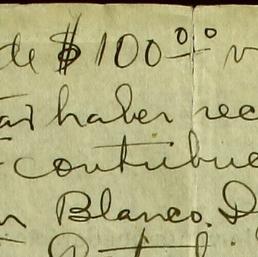 de $100.00
haber rec
contribuc
Blanco. D